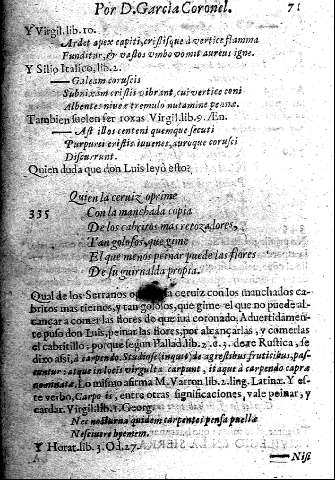 Por D. Garcia Coronel. 71
Y Virgil. lib. 10.
Ardet apex capiti, cristisque à vertice flamma
Funditur, & vastos vmbo vomit aureus igne.
Y Silio Italico, lib. 2.
—Galeam coruscis
Subnixam cristis vibrant, cui vertice coni
Albentes niueæ tremulo nutamine pennæ.
Tambien suelen ser roxas Virgil. lib. 9. Æn.
—Ast illos centeni quemque secuti
Purpurei cristis iuuenes, auroque corusci
Discurrunt.
Quien duda que don Luis leyò esto?
Quien la ceruiz oprime
335 Con la manchada copia
De los cabritos mas retozadores,
Tan golosos, que gime
El que menos peinar puede las flores
De su guirnalda propia.
Qual de los Serranos la ceruiz con los manchados ca-
britos mas tiernos, y tan golosos, que gime el que no puede al-
cançar a comer las flores de que iua coronado. Aduertidamen-
te puso don Luis, peinar las flores, por alcançarlas, y comerlas
el cabritillo; porque segun Pallad. lib. 2. d. 3. de re Rustica, se
dixo assi, à carpendo. Studiose (inquit) de agrestibus fruticibus, pas-
cuntur: atque in locis virgultis carpunt, itaque à carpendo capra
nominatæ. Lo mismo afirma M. Varron. lib. 2. ling. Latinæ. Y es-
te verbo, Carpo is, entre otras significaciones, vale peinar, y
cardar. Virgil. lib. 1. Georg.
Nec nocturna quidem carpentes pensa puellæ
Nesciuere hyemem.
Y Horat. lib. 3. Od. 27.
—Nisi